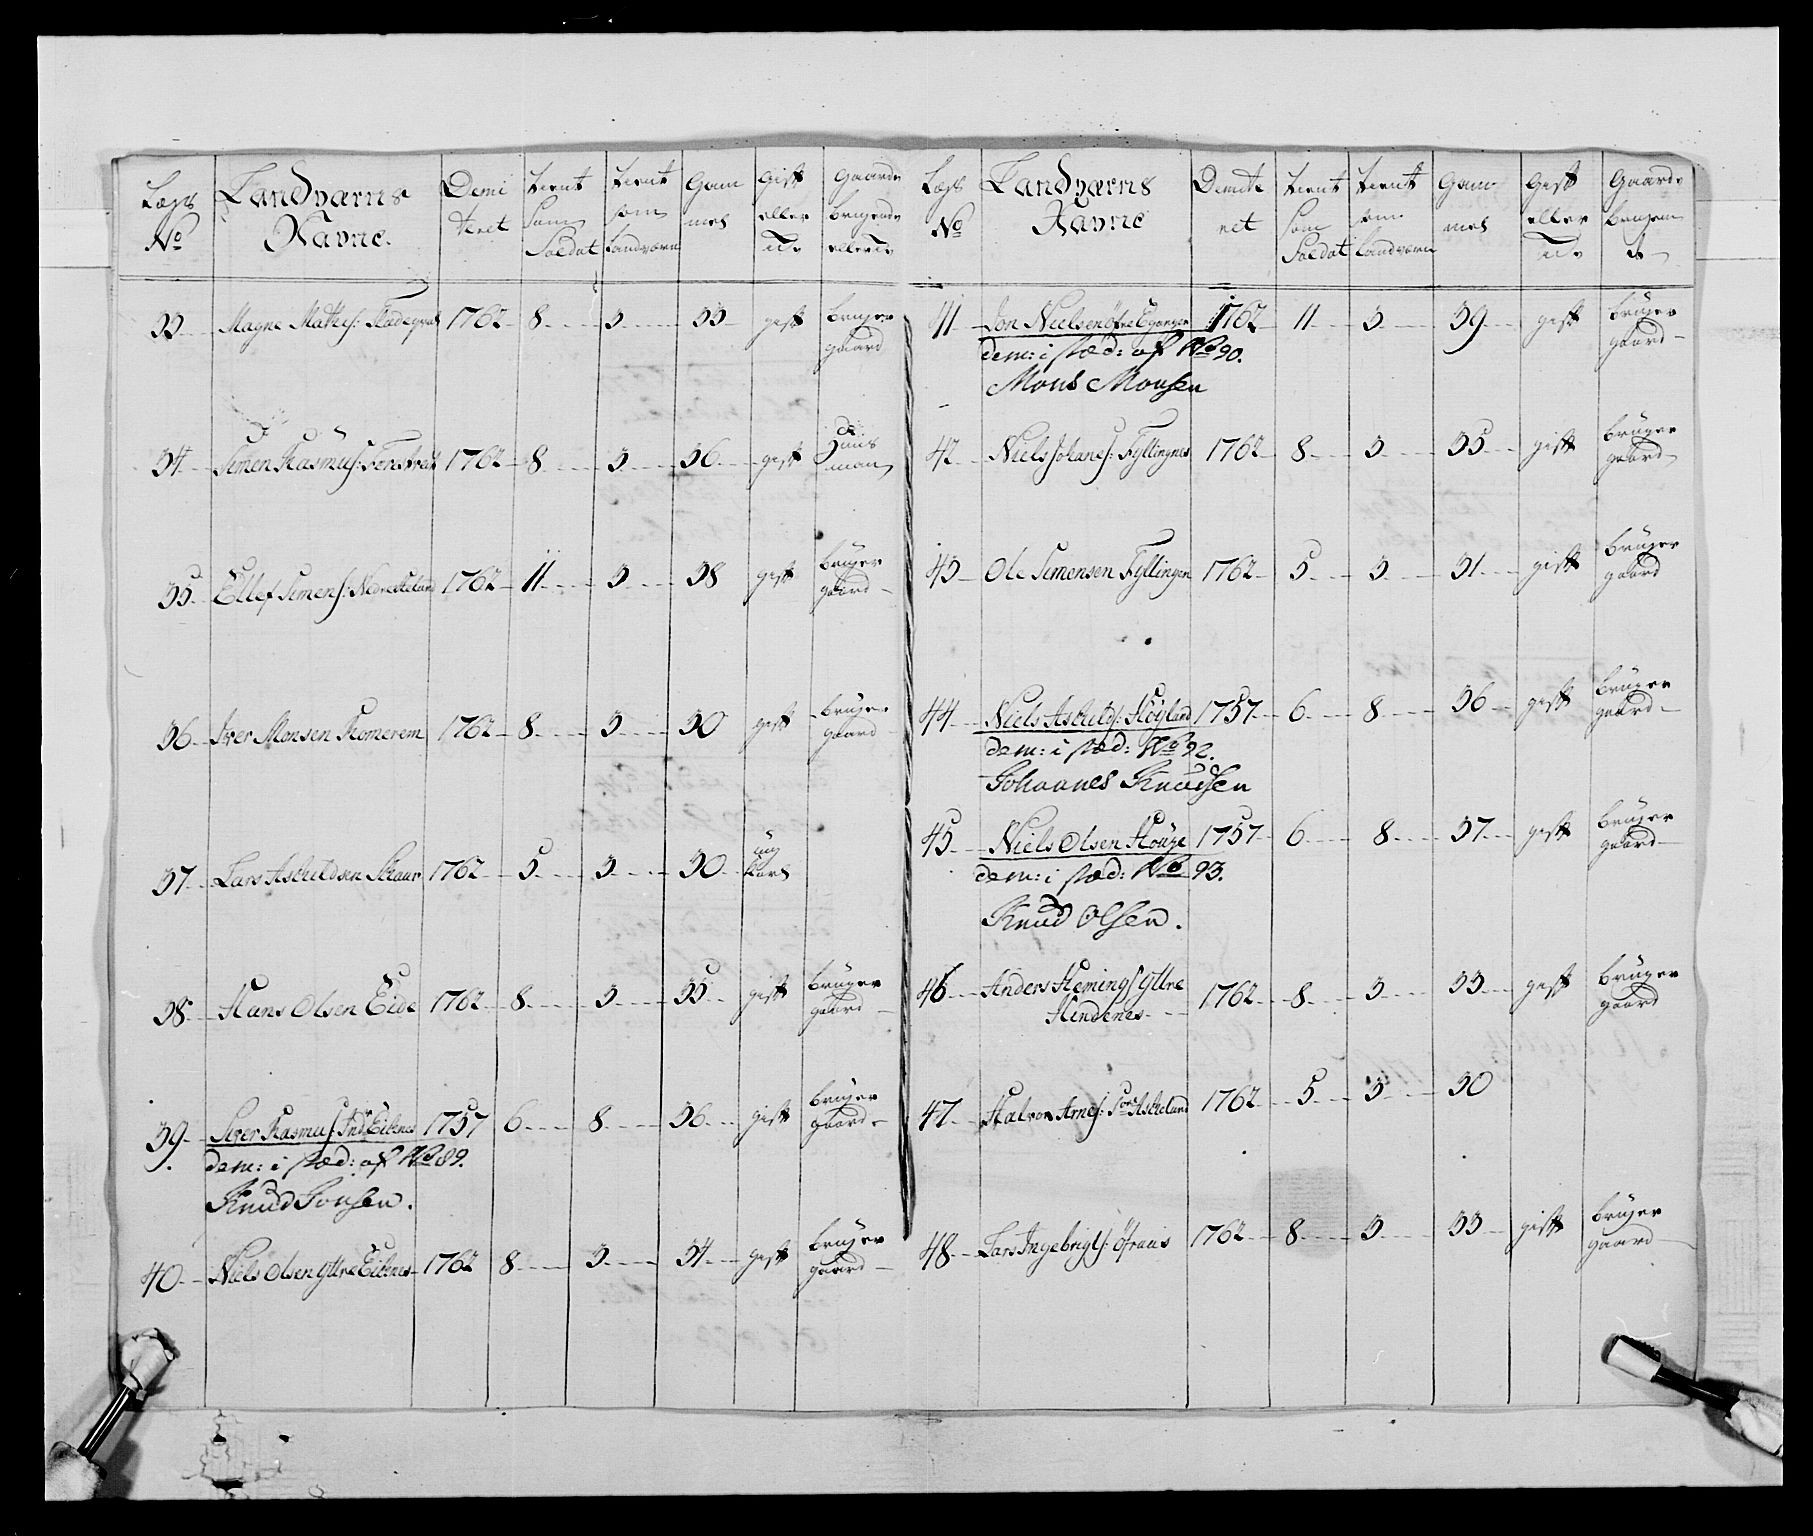 Lægs No Landværns Navne. Demitteret tient Som Soldat tient som Landværn Gammel Gift eller Ei Gaards brugende eller Ei
33 Magne Mathis: 1762 8 3 33 gift bruger gaard
34 Simen Rasmus: 1762 8 3 36 gift Huus man
35 Ellef Simens: 1762 11 3 38 gift bruger gaard
36 Iver Monsen Romerem 1762 8 3 30 gift bruger gaard
37 Lars Askildsen Schaar 1762 5 3 30 ung Karl
38 Hans Olsen Eide 1762 8 3 35 gift bruger gaard
39 Siver Rasmus: Ind Eiknes 1757 6 8 36 gift bruger gaard
dem: i stæd: af No 89.
Knud Jonsen.
40 Niels Olsen Yttre Eiknes 1762 8 3 34 gift bruger gaard
Lægs No Landværns Navne Demitteret tient Som Soldat tient som Landværn Gammel Gift eller Ei Gaards brugende
41 Jon Nielsen Øfre Eganger 1762 11 3 39 gift bruger gaard
dem: i stæd: af No 90.
Mons Monsen
42 Niels Johanes: Fyllingnes 1762 8 3 35 gift bruger gaard
43 Ole Simensen Fyllingen 1762 5 3 31 gift bruger gaard
44 Niels Askilds: Høyland 1757 6 8 36 gift bruger gaard
dem: i stæd: No 92.
Johannes Knudsen
45 Niels Olsen Houge 1757 6 8 37 gift bruger gaard
dem: i stæd: No 93.
Knud Olsen.
46 Anders Hemings Yttre 1762 8 3 33 gift bruger gaard
Hindenes
47 Halvor Arnes: Askeland 1762 5 3 30
48 Lars Ingebrigts: 1762 8 3 33 gift bruger gaard